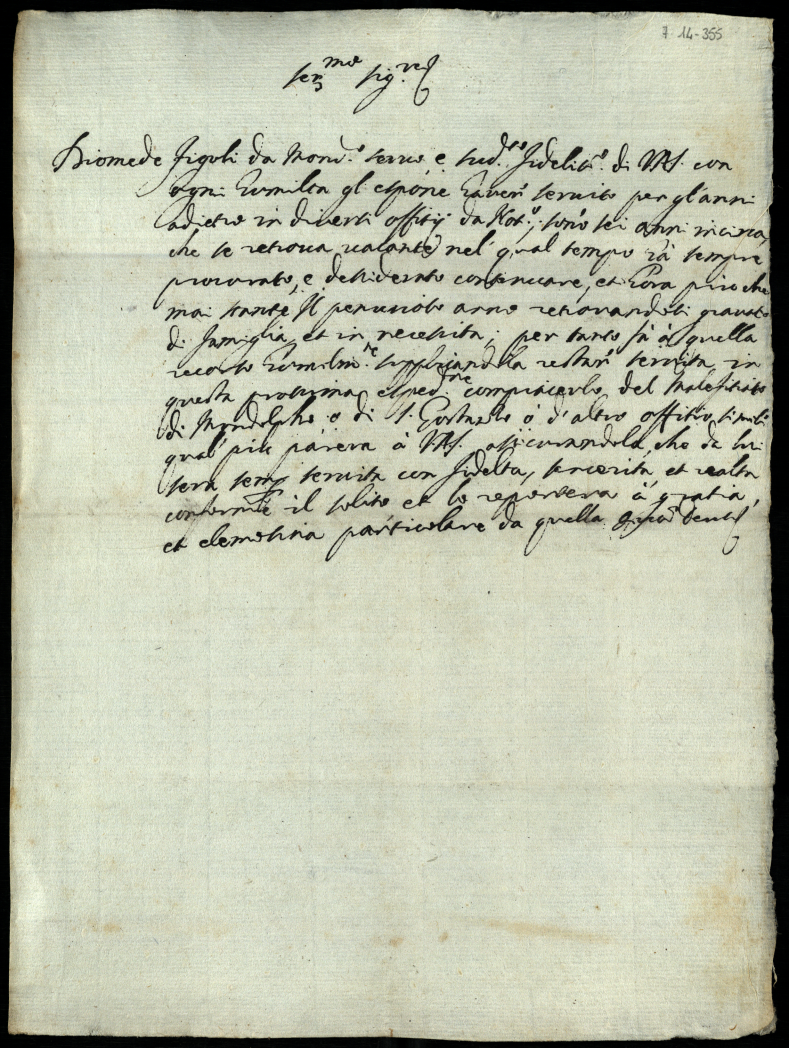 7-14-355
Ser.mo Sig.re
Diomede Figoli da Mond.o servo e sud.to fidelis.o di VAS. con
ogni humilta gl'espone haver servito per gl'anni
adietro in diversi offitij da Not.o, sono sei anni incirca,
che se retrova vacante nel qual tempo ha sempre
procurato, e desiderato continuare, et hora piu che
mai stante il penurioso anno retrovandosi gravato
di famiglia, et in necessita; per tanto fa à quella
recorso humilm.te supplicandola restar servita, in
questa prossima esped.ne compiacerlo, del Malefitiato
di Mondolpho o di S. Gostanzo ò d'altro offitio, simili
qual' più parera à VAS. assicurandola, che da lui
sera semp servita con fidelta, sincerita et realta
conforme il solito et lo reportera à gratia,
et elemosina particolare da quella